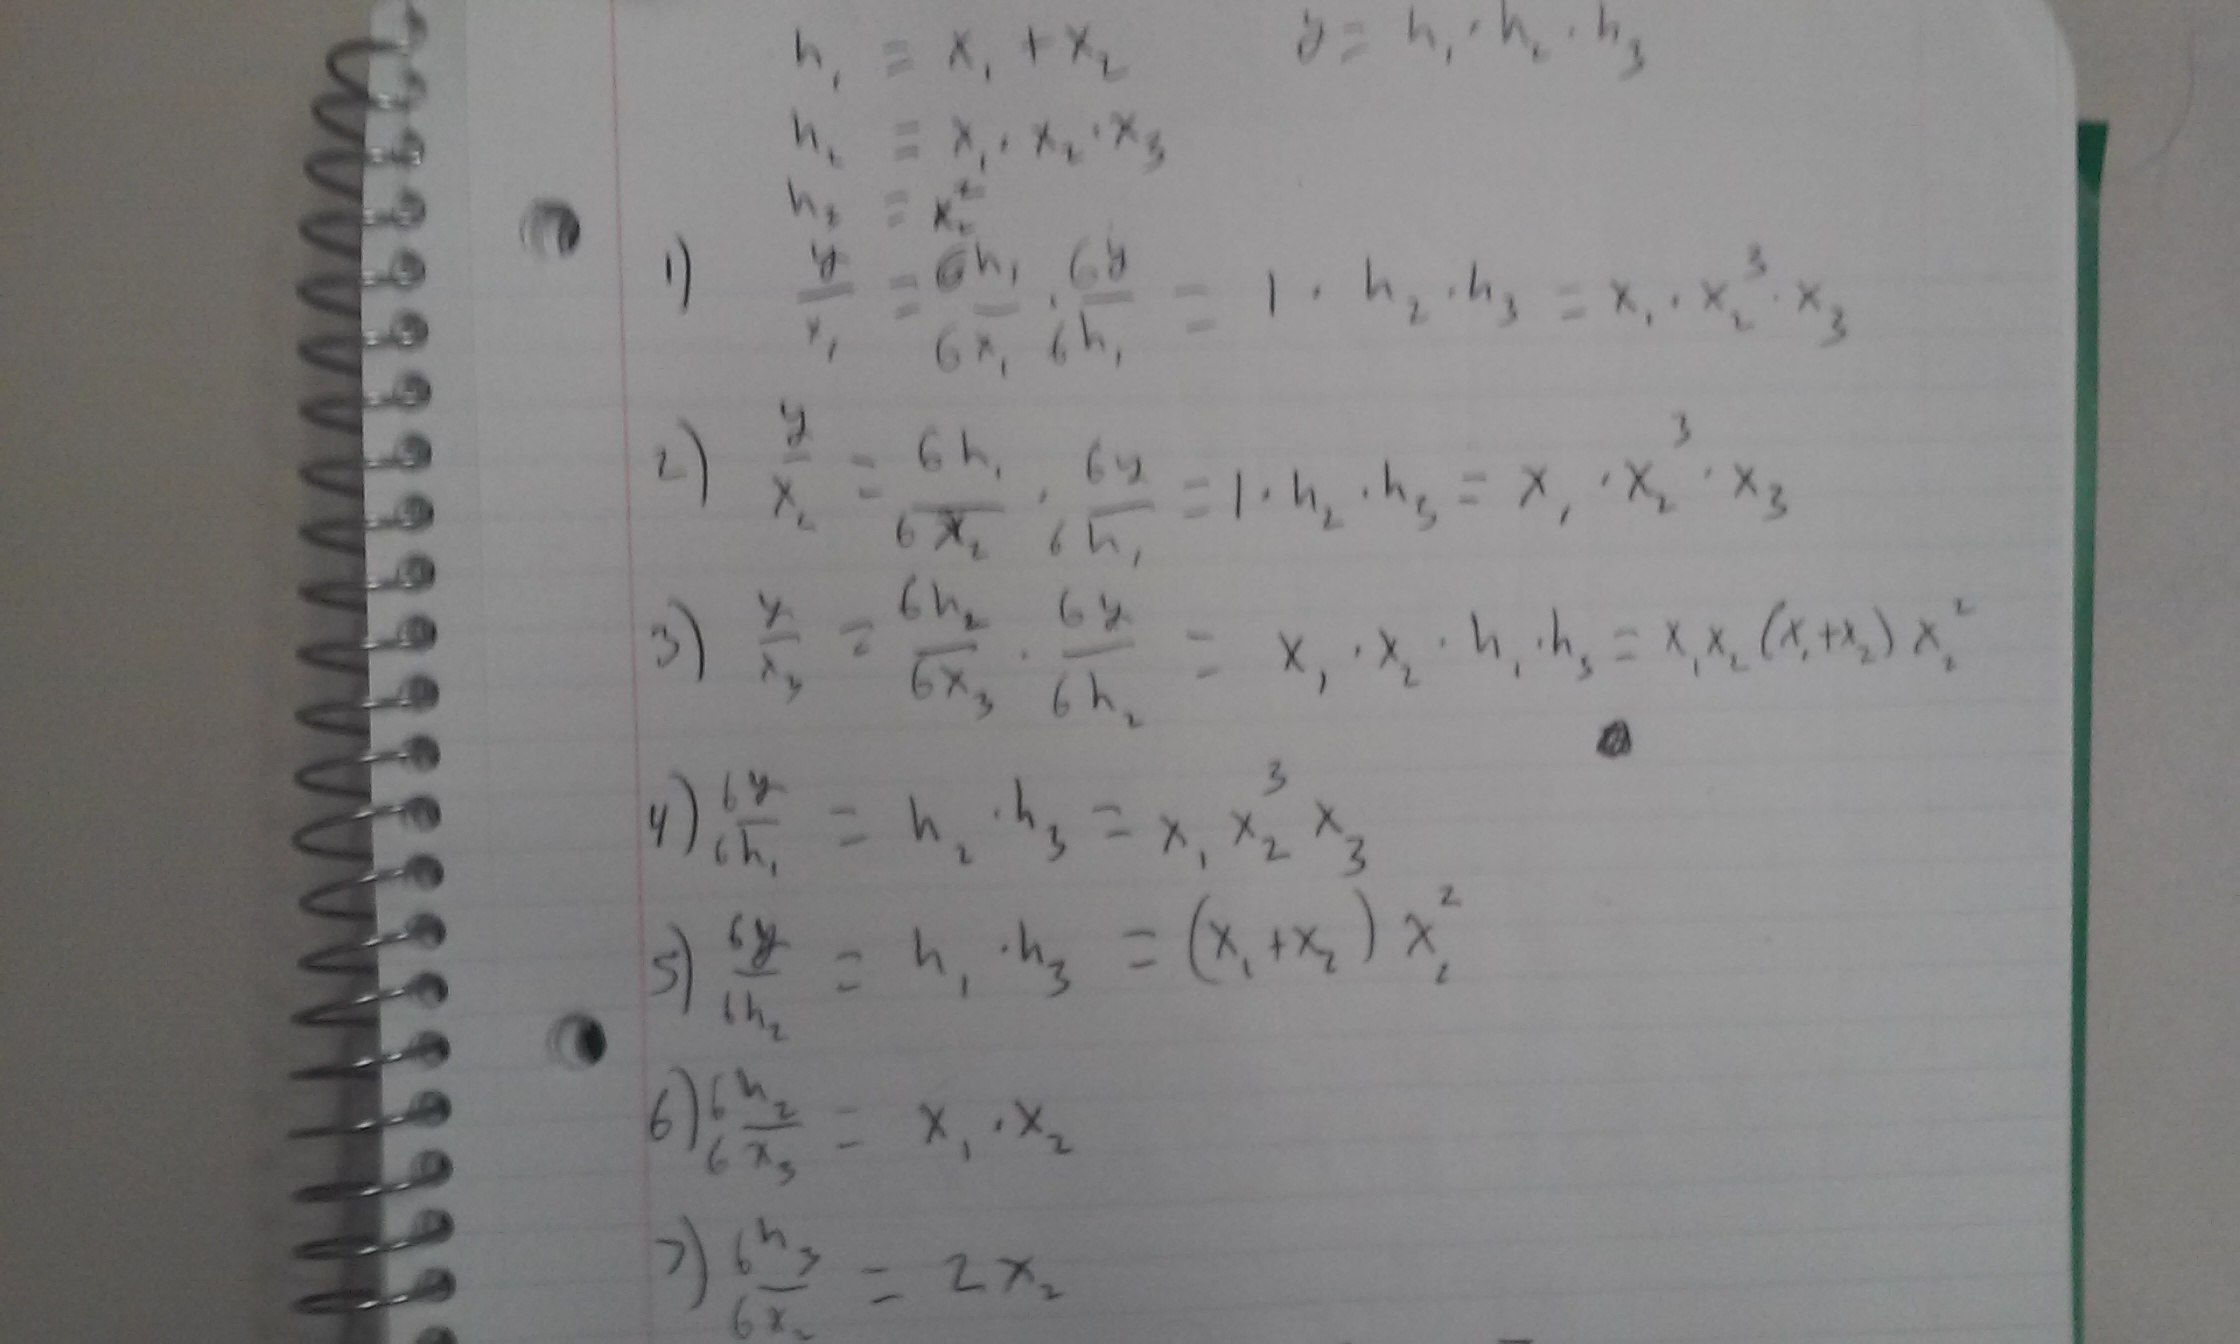 h₁ = x₁ + x₂   y = h₁ · h₂ · h₃
h₂ = x₁ · x₂ · x₃
h₃ = x₂²
1) y/x₁ = 6h₁/6x₁ · 6y/6h₁ = 1 · h₂ · h₃ = x₁ · x₂³ · x₃
2) y/x₂ = 6h₁/6x₂ · 6y/6h₁ = 1 · h₂ · h₃ = x₁ · x₂³ · x₃
3) y/x₃ = 6h₂/6x₃ · 6y/6h₂ = x₁ · x₂ · h₁ · h₃ = x₁x₂(x₁+x₂)x₂²
4) 6y/6h₁ = h₂ · h₃ = x₁ x₂³ x₃
5) 6y/6h₂ = h₁ · h₃ = (x₁+x₂) x₂²
6) 6h₂/6x₃ = x₁ · x₂
7) 6h₃/6x₂ = 2x₂